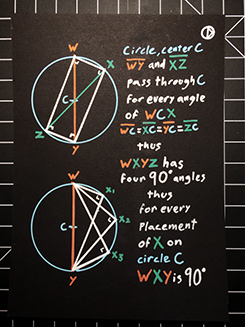 Circle, center C
WY and XZ
pass through C
for every angle
of WCX
WC=XC=YC=ZC
thus
WXYZ has
four 90° angles
thus
for every
placement
of X on
circle C
WXY is 90°
W
X
C
Z
Y
W
X₁
C
X₂
X₃
Y